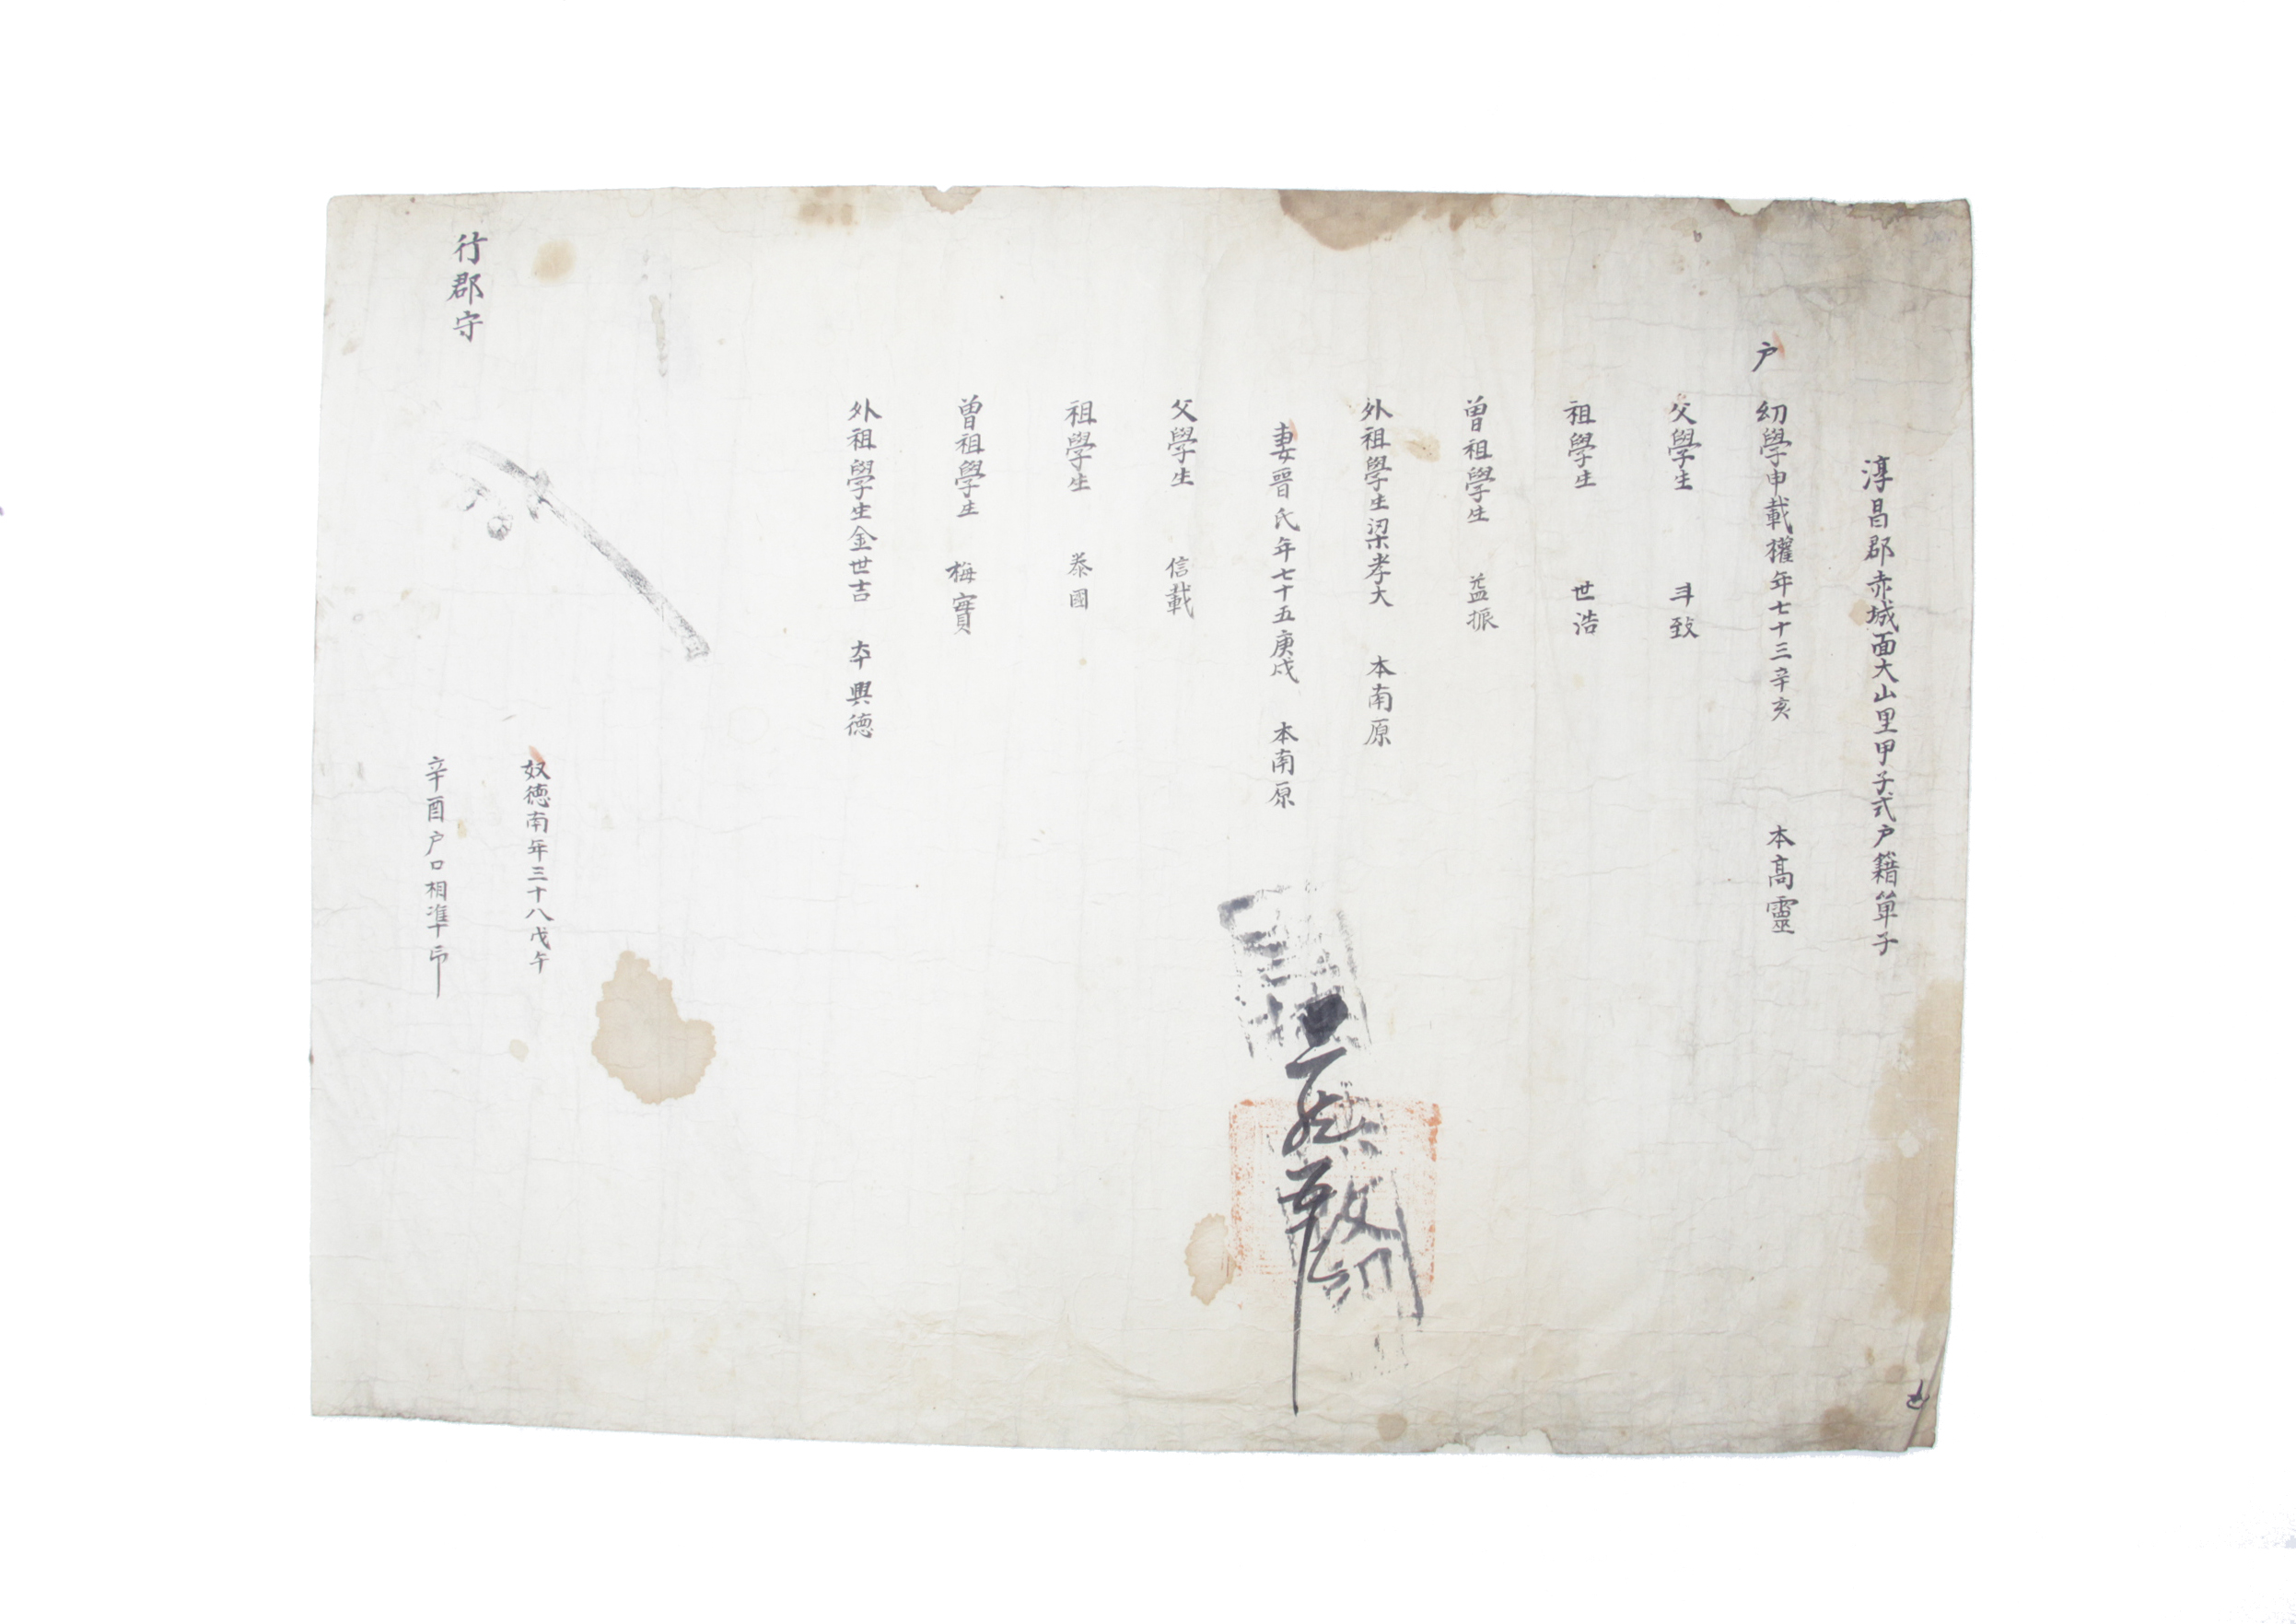 淳昌郡赤城面大山里甲子式户籍單子
户 幼學申載權年七十三辛亥 本高靈
父學生 斗致
祖學生 世浩
曾祖學生 益振
外祖學生梁孝大 本南原
妻晉氏年七十五庚戌 本南原
父學生 信載
祖學生 泰國
曾祖學生 梅實
外祖學生金世吉 本興德
奴德南年三十八戊午
辛酉户口相準印
行郡守